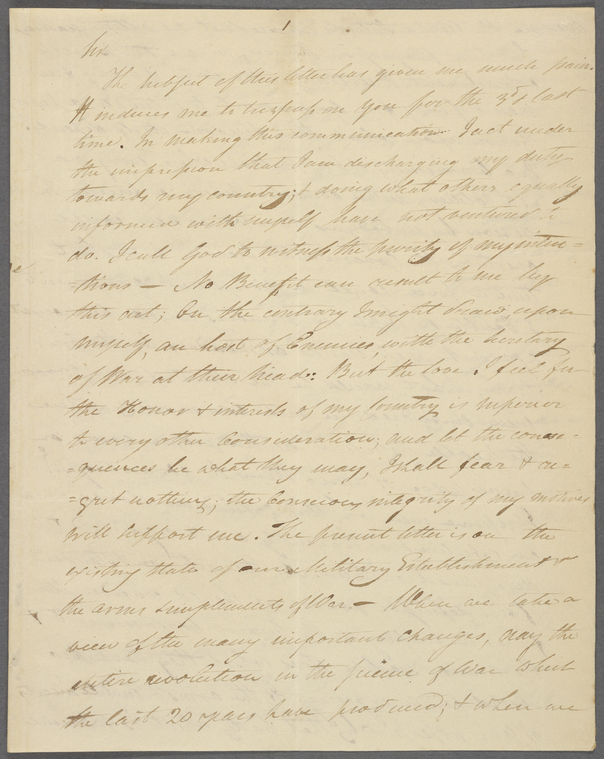 1
Sir
The subject of this letter has given me much pain.
It induces me to trespass on you for the 3rd & last
time. In making this communication I act under
the impression that I am discharging my duty
towards my country; & doing what others equally
informed with myself have not ventured to
do. I call God to witness the purity of my inten-
-tions – No Benefit can result to me by
this act; On the contrary I might draw upon
myself, an host of Enemies, with the Secretary
of War at their head: But the love I feel for
the Honor & interests of my Country is superior
to every other Consideration; and let the conse-
-quences be what they may, I shall fear & re-
-gret nothing; the Conscious integrity of my motives
will support me. The present letter is on the
existing state of our Military Establishment &
the arms & implements of War – When we take a
view of the many important changes, nay the
entire revolution in the science of War which
the last 20 years have produced; & when we